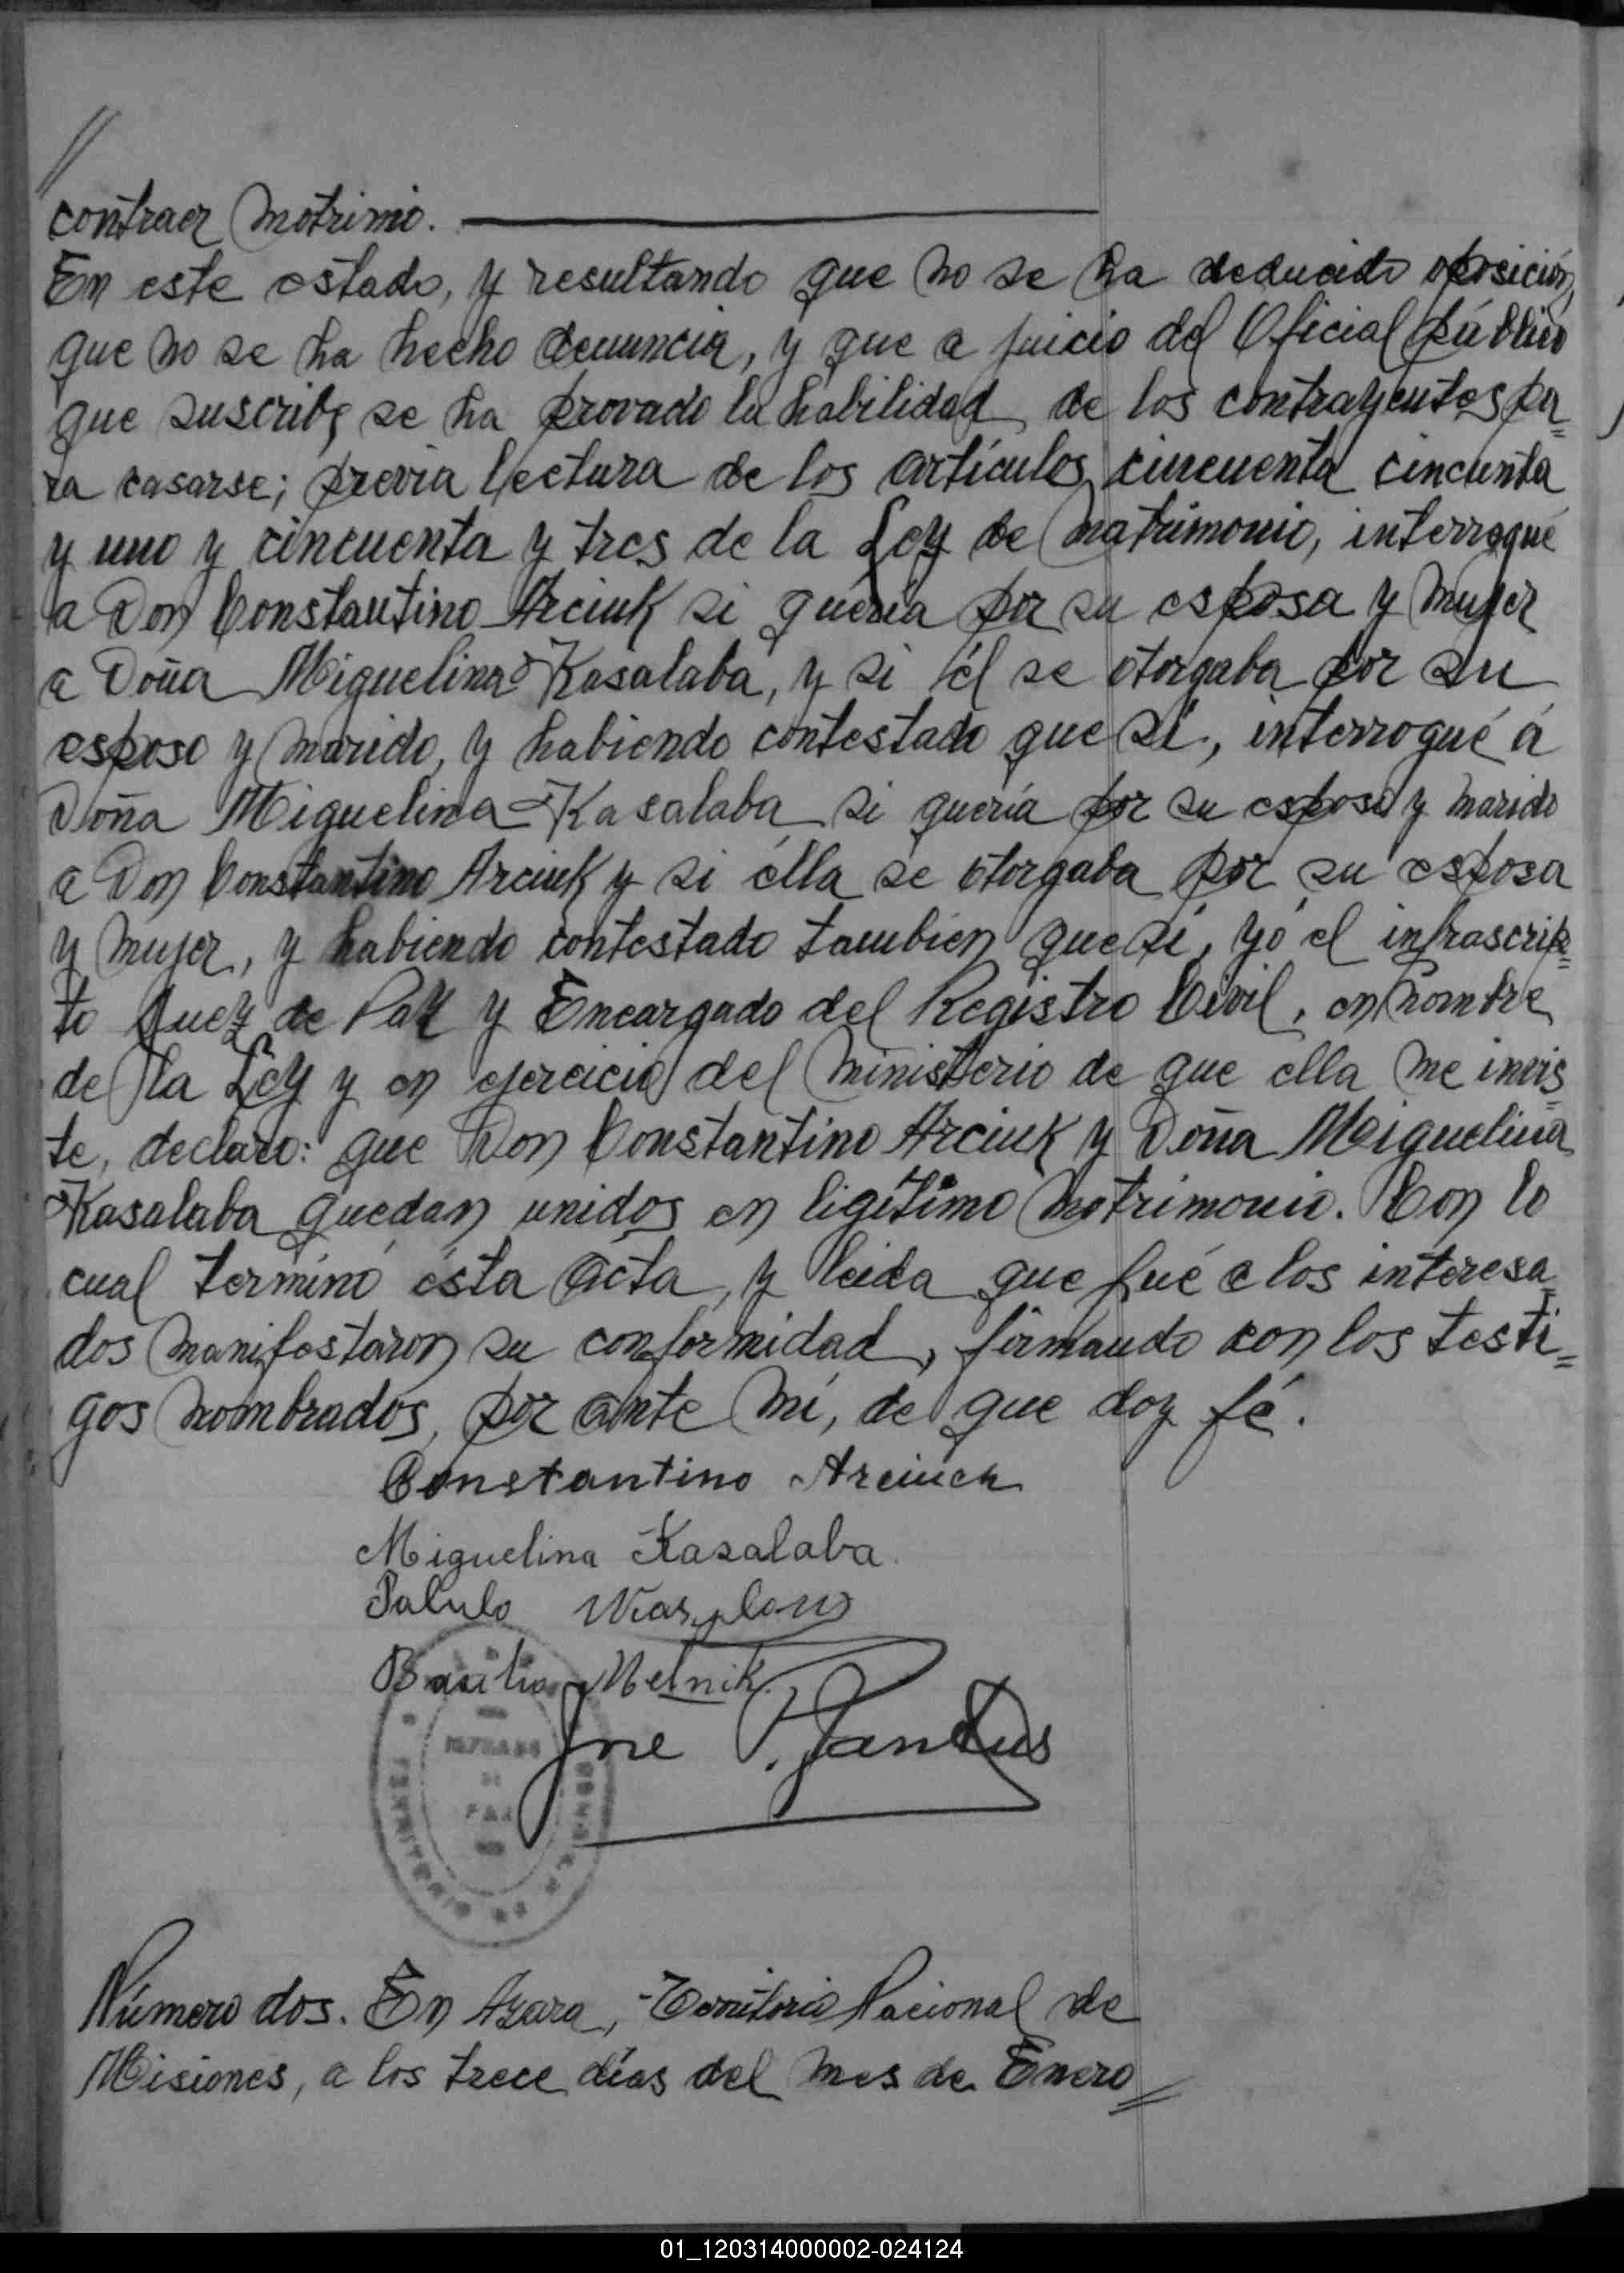 //
contraer motrimio.
En este estado, y resultando que no se ha deducido oposición,
que no se ha hecho denuncia, y que a juicio del Oficial público
que suscribe se ha provado la habilidad de los contrayentes pa=
ra casarse; previa lectura de los artículos cincuenta cincuenta
y uno y cincuenta y tres de la Ley de matrimonio, interrogué
a Don Constantino Arciuk si quería por su esposa y mujer
a Doña Miguelina Kasalaba, y si él se otorgaba por su
esposo y marido, y habiendo contestado que sí, interrogué á
Doña Miguelina Kasalaba si quería por su esposo y marido
a Don Constantino Arciuk y si élla se otorgaba por su esposa
y mujer, y habiendo contestado tambien que sí, yó el infrascrip=
to Juez de Paz y Encargado del Registro Civil, en nombre
de la Ley y en ejercicio del ministerio de que ella me invis=
te, declaro: que Don Constantino Arciuk y Doña Miguelina
Kasalaba quedan unidos en ligítimo motrimonio. Con lo
cual terminó ésta acta, y leida que fué a los interesa=
dos manifestaron su conformidad, firmando con los testi=
gos nombrados, por ante mí, de que doy fé.
Constantino Arciuch
Miguelina Kasalaba
Basilio Melnik
JUZGADO
DE
PAZ
TERRITORIO
Número dos. En Azara, Territorio Nacional de
Misiones, a los trece días del mes de Enero //
01_120314000002-024124